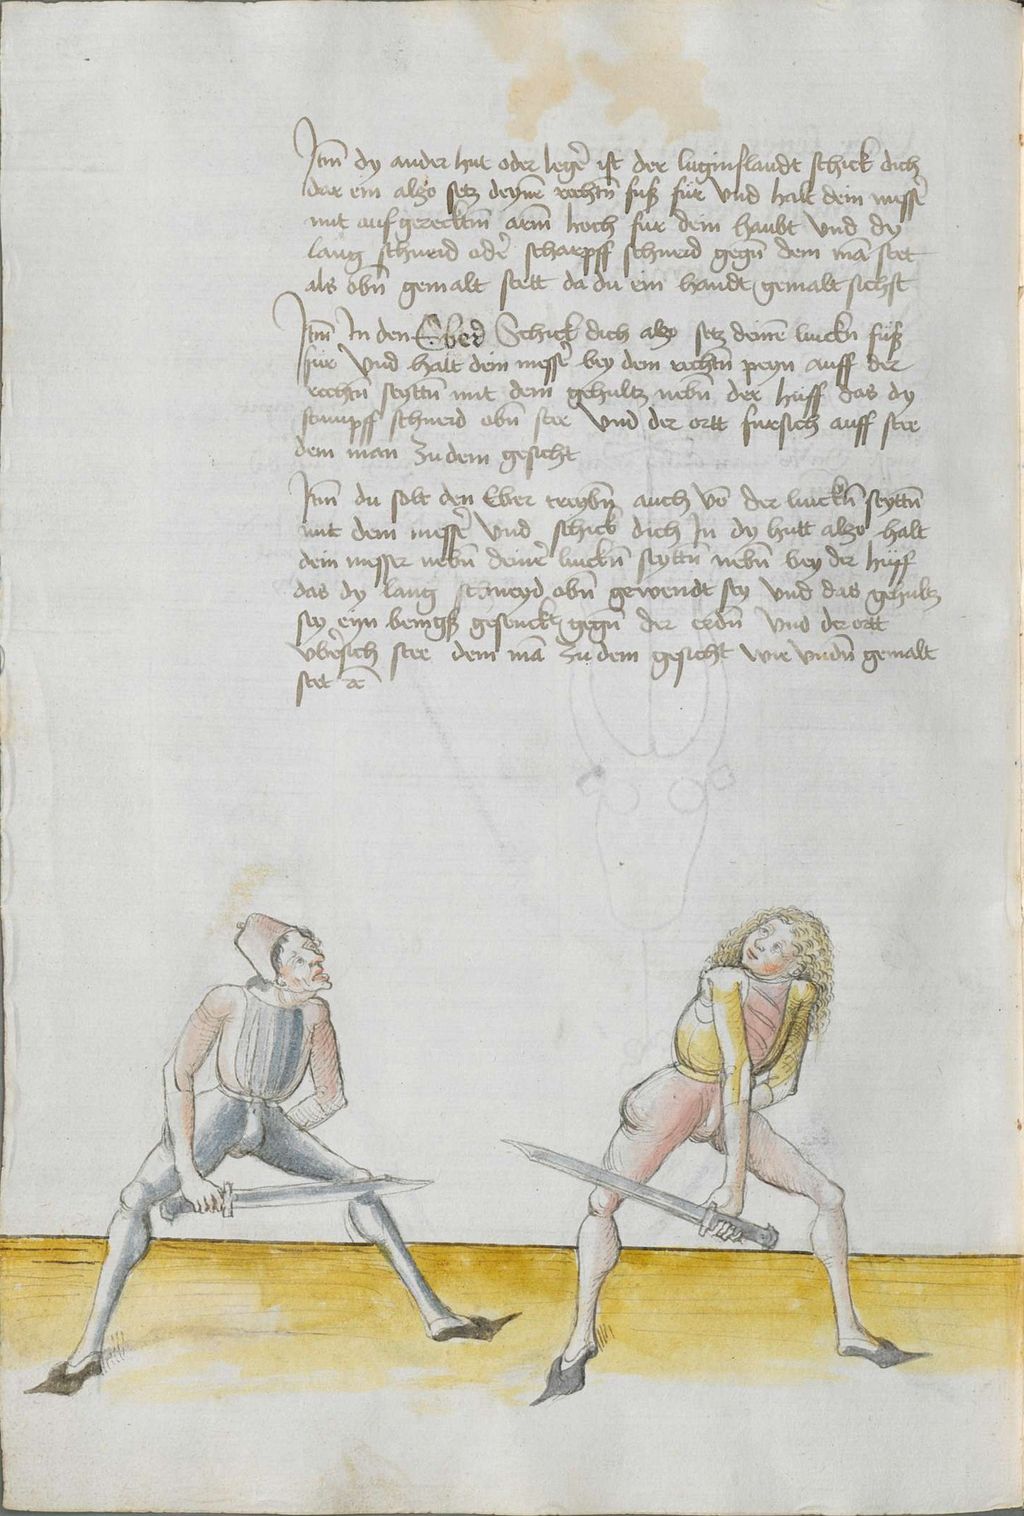 Itm dy ander hut oder leger ist der luginslandt schick dich
dar ein also setz deynē rechtn̄ fuß für vnd halt dein messer
mit auf gerecktm̄ arm̄ hoch für dein haubt vnd dy
lang schneid oder scharpff schneid gegn̄ dem mā stet
als obn̄ gemalt stett da du ein handt gemalt sichst
Itm In den Eber Schick dich also setz deinē linckn fuß
für vnd halt dein messer bey dem rechtn̄ peyn auff der
rechtn̄ seyttn̄ mit dem gehultz nebn̄ der huff das dy
stumpff schneid obn̄ stee vnd der ortt fursich auff stee
dem man zu dem gesicht
Itm du solt den Eber treybn̄ auch vō der linckn̄ seyttn̄
mit dem messer vnd schick dich In dy hutt also halt
dein messer nebn̄ deiner linckn̄ seyttn̄ nebn̄ bey der huff
das dy lang schneyd obn̄ gewendt sey vnd das gehultz
sey eyn wenigß gesenckt gegn̄ der erdn̄ vnd der ortt
vbersich stee dem mā zu dem gesicht wie vndn̄ gemalt
stet